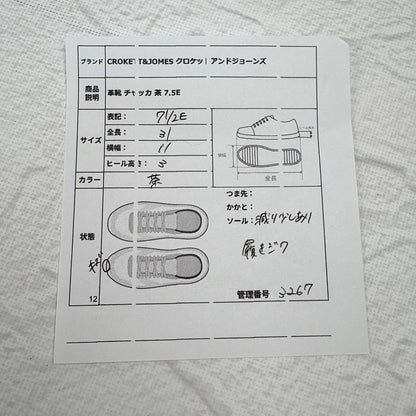 ブランド CROKET T&JOMES クロケット アンドジョーンズ
商品説明 革靴 チャッカ 茶 7.5E
サイズ
表記： 7 1/2E
全長： 31
横幅： 11
ヒール高さ： 3
横幅
全長
カラー 茶
状態
つま先：
かかと：
ソール： 減り少しあり
履きジワ
キズ
12
管理番号 3267